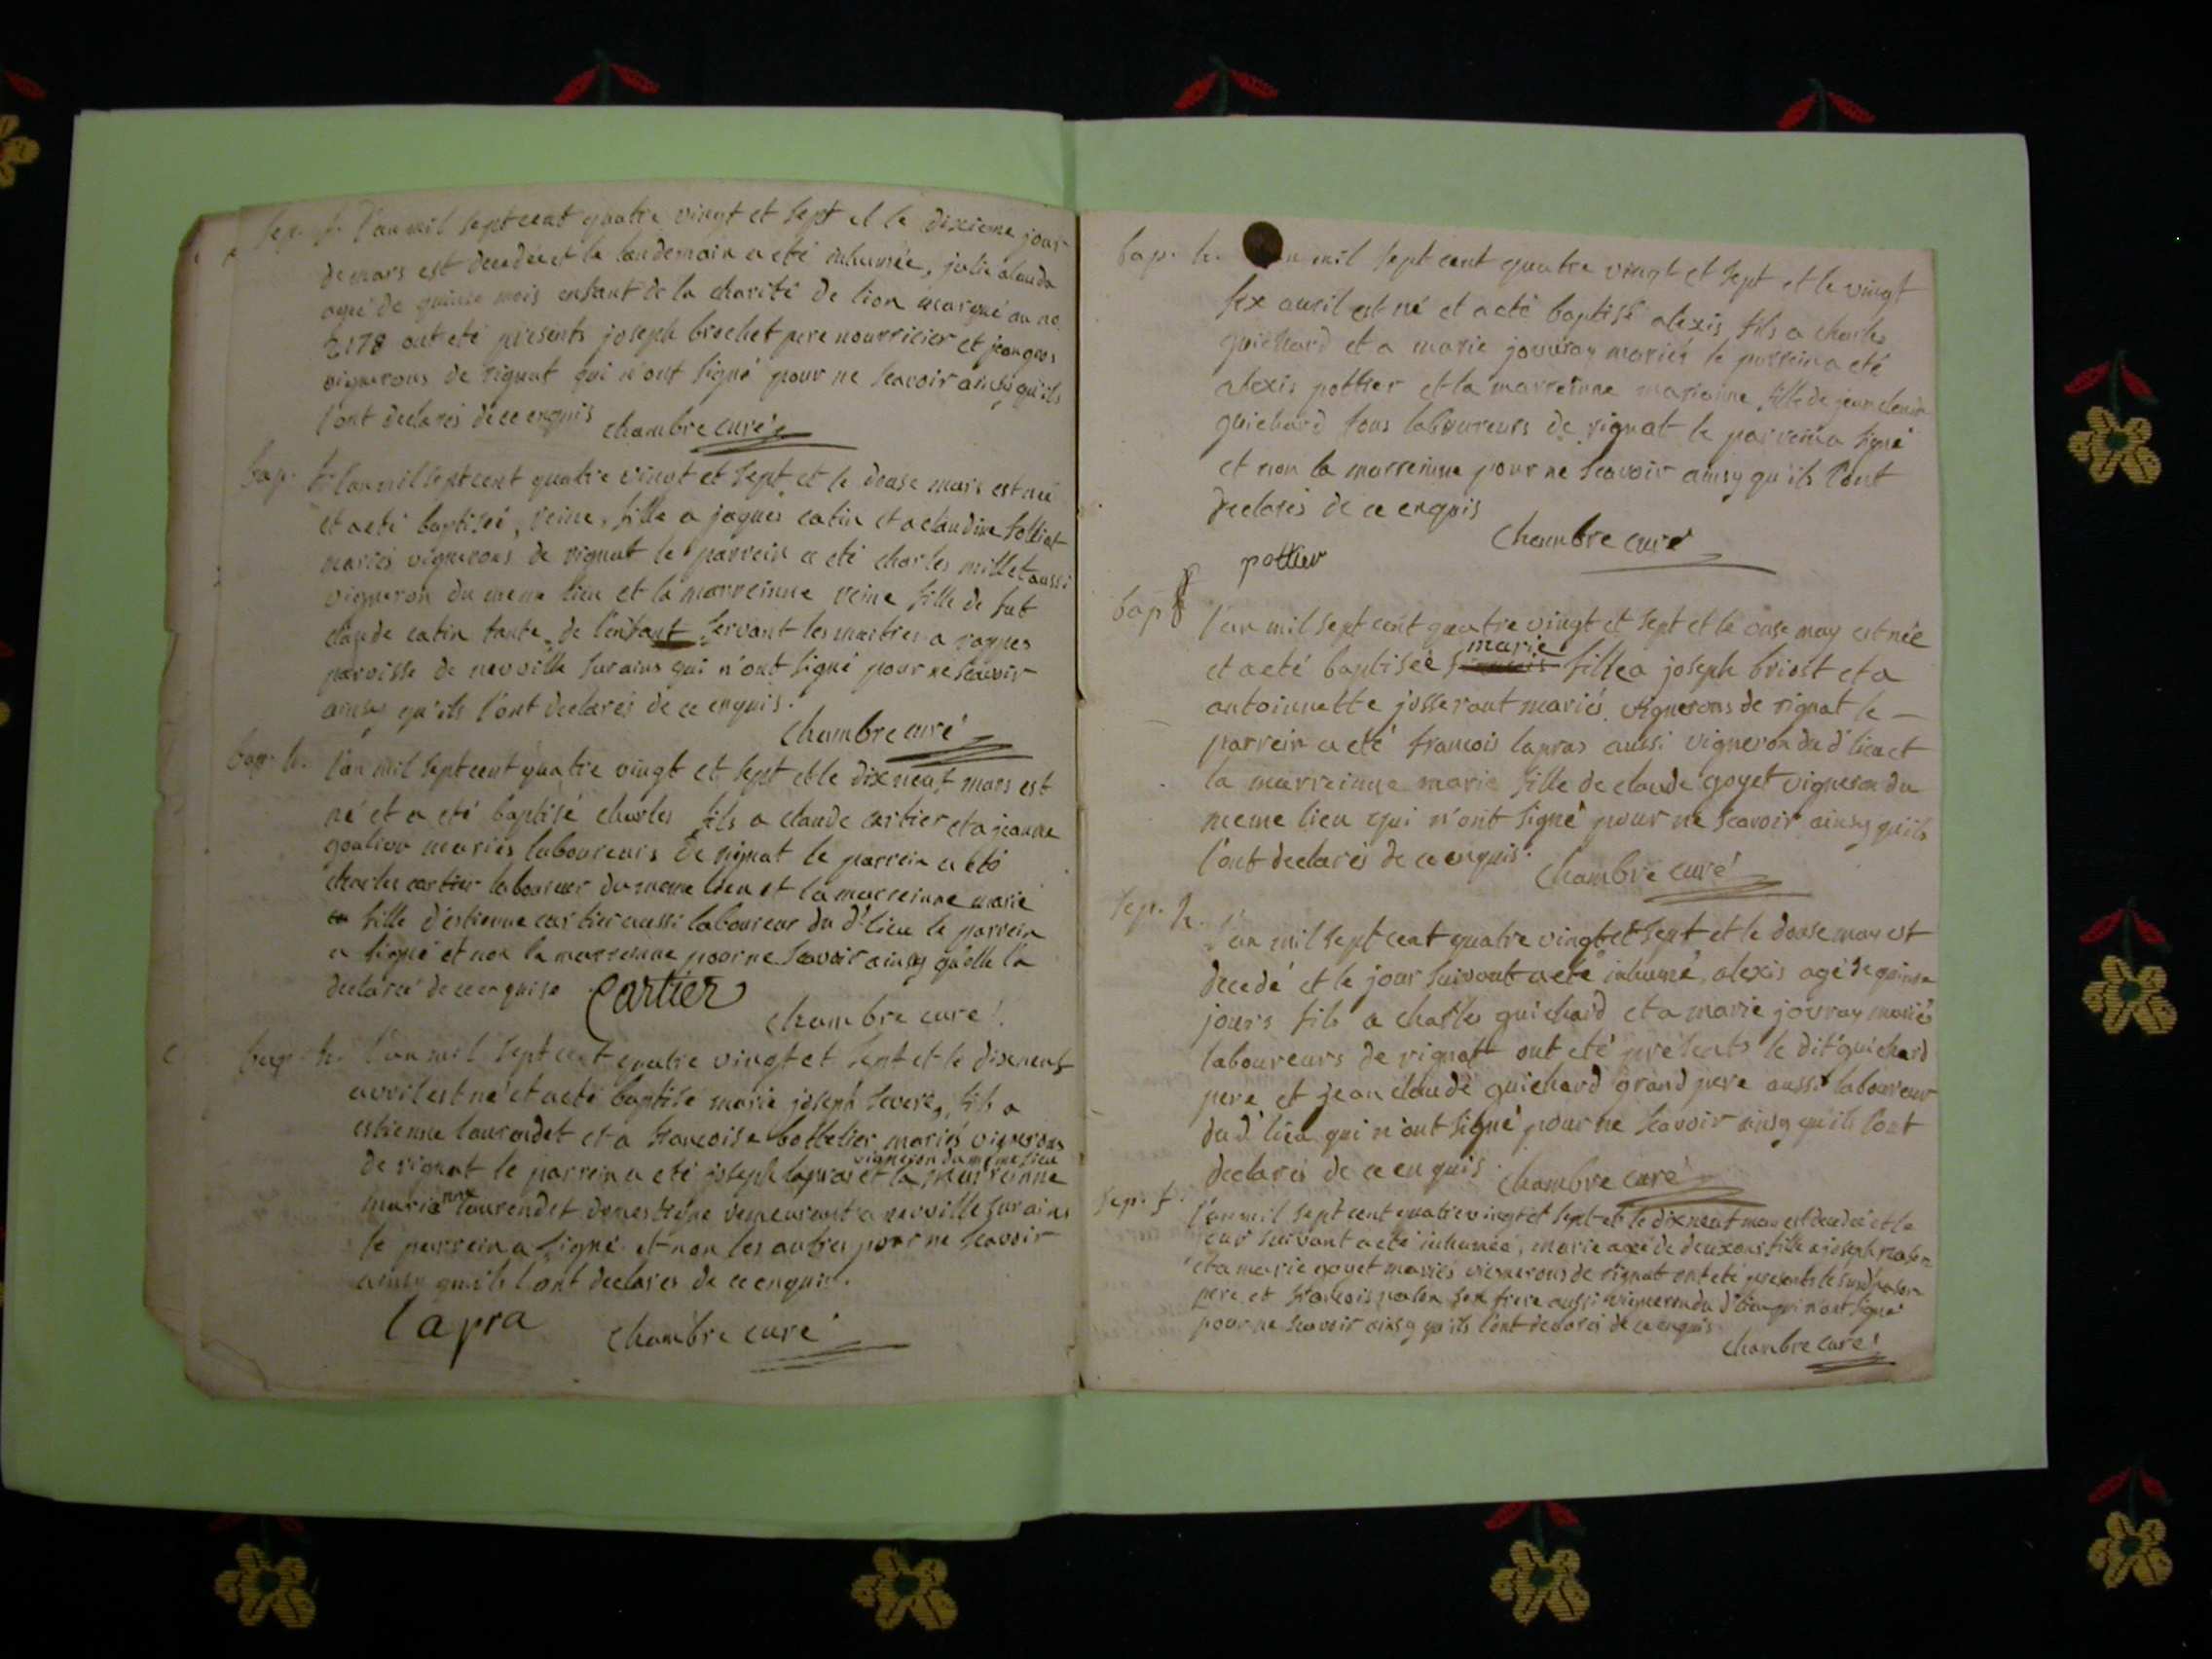 sep. f. l'an mil sept cent quatre vingt et sept et le dixieme jour
de mars est decedée et le landemain a eté inhumée, julie
agé de quinze mois enfant de la charité de lion marqué au no
2178 ont eté presents joseph brochet pere nourricier et jean gros
vignerons de rignat qui n'ont signé pour ne scavoir ainsy qu'ils
l'ont declarés de ce enquis chambre curé
bap. f. l'an mil sept cent quatre vingt et sept et le douse mars est née
et a eté baptisée, reine, fille a jaques catin et a claudine folliat
mariés vignerons de rignat le parrein a eté charles millet aussi
vigneron du meme lieu et la marreinne reine fille de fut
claude catin tante de l'enfant servant les maitres a
paroisse de neuville sur ains qui n'ont signé pour ne scavoir
ainsy qu'ils l'ont declarés de ce enquis.
chambre curé
bap. h. l'an mil sept cent quatre vingt et sept et le dix neuf mars est
né et a eté baptisé charles fils a claude cartier et a jeanne
goaliou mariés laboureurs de rignat le parrein a eté
charles cartier laboureur du meme lieu et la marreinne marie
fille d'estienne cartier aussi laboureur du d. lieu le parrein
a signé et non la marreinne pour ne scavoir ainsy qu'elle l'a
declaré de ce enquise Cartier
chambre curé
bap. h. l'an mil sept cent quatre vingt et sept et le dix neuf
avril est né et a eté baptisé marie joseph severe, fils a
estienne laurendet et a francoise bottelier mariés vignerons
vigneron du meme lieu
de rignat le parrein a eté joseph lapras et la marreinne
marianne laurendet domestique demeurant a neuville sur ains
le parrein a signé et non les autres pour ne scavoir
ainsy qu'ils l'ont declarés de ce enquis.
lapra chambre curé
bap. h. l'an mil sept cent quatre vingt et sept et le vingt
six avril est né et a eté baptisé alexis fils a charles
guichard et a marie jouvray mariés le parrein a eté
alexis pottier et la marreinne marianne fille de jean claude
guichard tous laboureurs de rignat le parrein a signé
et non la marreinne pour ne scavoir ainsy qu'ils l'ont
declarés de ce enquis
chambre curé
pottier
bap f l'an mil sept cent quatre vingt et sept et le onse may est née
marie
et a eté baptisée fille a joseph briost et a
antoinette josserant mariés vignerons de rignat le
parrein a eté francois lapras aussi vigneron du d. lieu et
la marreinne marie fille de claude goyet vigneron du
meme lieu qui n'ont signé pour ne scavoir ainsy qu'ils
l'ont declarés de ce enquis. chambre curé
sep. h. l'an mil sept cent quatre vingt et sept et le douse may est
decedé et le jour suivant a eté inhumé, alexis agé de quinse
jours fils a charles guichard et a marie jouvray mariés
laboureurs de rignat ont eté presents le dit guichard
pere et jean claude guichard grand pere aussi laboureur
du d. lieu qui n'ont signé pour ne scavoir ainsy qu'ils l'ont
declarés de ce enquis. chambre curé
sep. f. l'an mil sept cent quatre vingt et sept et le dix neuf may est decedée et le
jour suivant a eté inhumée, marie agé de deux ans fille a joseph
et a marie goyet mariés vignerons de rignat ont eté presents le susd.
pere et francois son frere aussi vigneron du d. lieu qui n'ont signé
pour ne scavoir ainsy qu'ils l'ont declarés de ce enquis
chambre curé